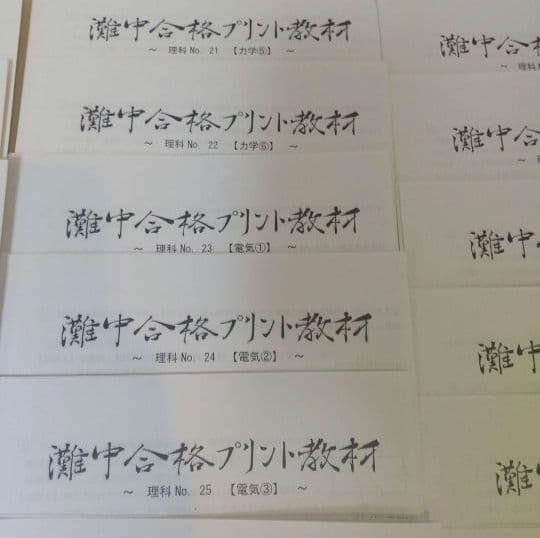 灘中合格プリント教材
～ 理科No. 21 【力学⑤】 ～
灘中合格プリント教材
～ 理科No. 22 【力学⑥】 ～
灘中合格プリント教材
～ 理科No. 23 【電気①】 ～
灘中合格プリント教材
～ 理科No. 24 【電気②】 ～
灘中合格プリント教材
～ 理科No. 25 【電気③】 ～
灘中合格
～ 理科
灘中合
～ 理
灘中
灘中
灘中